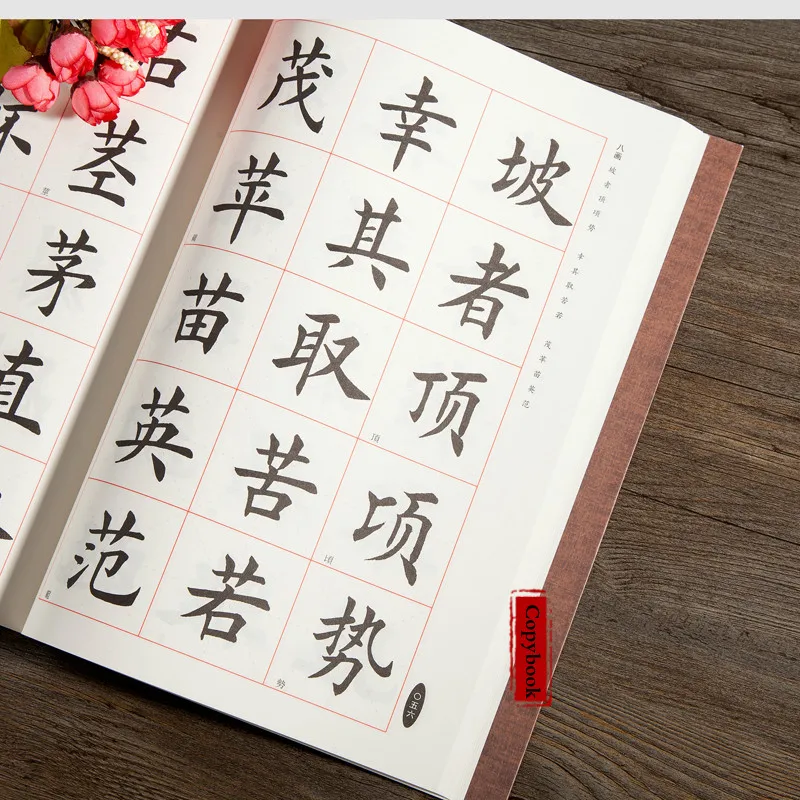 八画 坡者顶顷势 幸其取苦若 茂苹苗英范
坡
者
顶
頂
顷
頃
势
勢
幸
其
取
苦
若
茂
苹
蘋
苗
英
范
範
〇五六
茎
莖
茅
直
Copybook